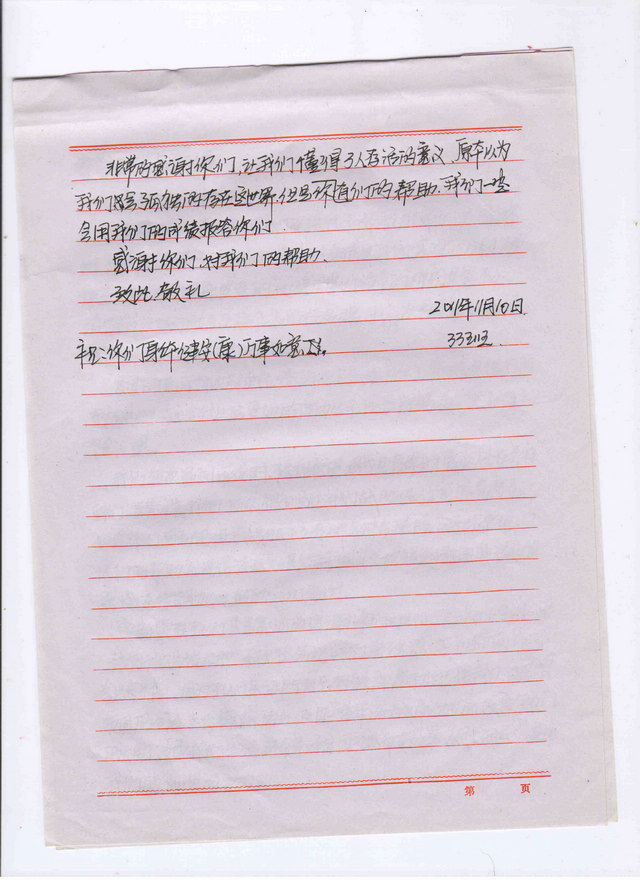 非常的感谢你们,让我们懂得了人存活的意义,原本以为
我们就会孤独的存在这世界,但是你有们的帮助,我们一些
会用我们的成绩报答你们.
感谢你们,对我们的帮助.
致此,敬礼
2011年11月10日.
333班.
祝:你们身体健安(康)万事如意
第 页